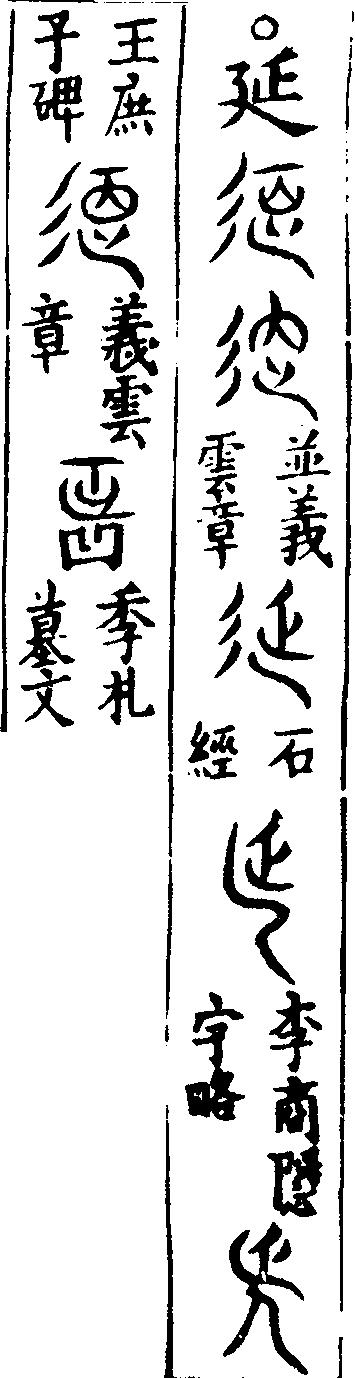 ○延並義雲章石經李商隱字略
王庶子碑義雲章季札墓文